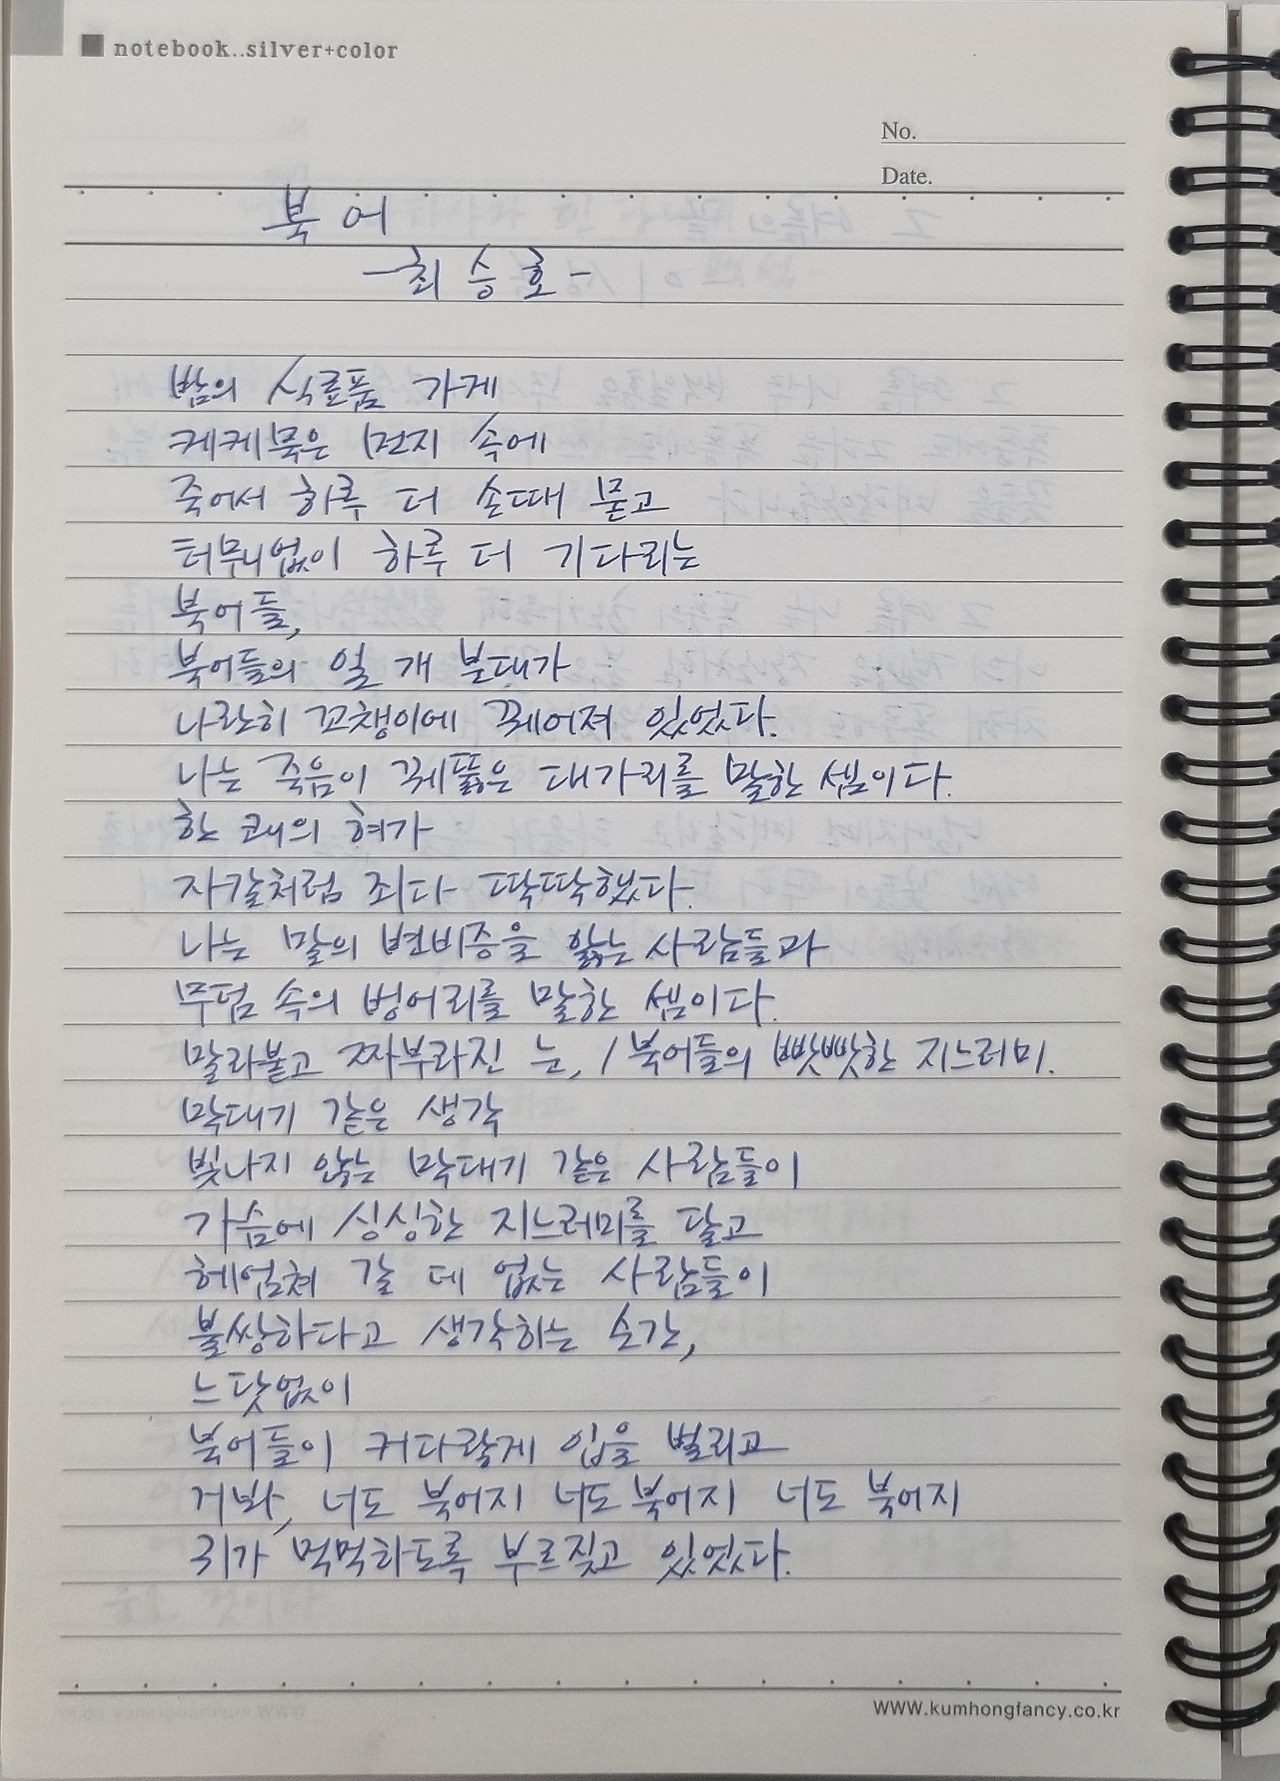 notebook..silver+color
No.
Date.
북어
-최승호-
밤의 식료품 가게
케케묵은 먼지 속에
죽어서 하루 더 손때 묻고
터무니없이 하루 더 기다리는
북어들,
북어들의 일 개 분대가
나란히 꼬챙이에 꿰어져 있었다.
나는 죽음이 꿰뚫은 대가리를 말한 셈이다.
한 쾌의 혀가
자갈처럼 죄다 딱딱했다.
나는 말의 변비증을 앓는 사람들과
무덤 속의 벙어리를 말한 셈이다.
말라붙고 짜부라진 눈, / 북어들의 빳빳한 지느러미.
막대기 같은 생각
빛나지 않는 막대기 같은 사람들이
가슴에 싱싱한 지느러미를 달고
헤엄쳐 갈 데 없는 사람들이
불쌍하다고 생각하는 순간,
느닷없이
북어들이 커다랗게 입을 벌리고
거봐, 너도 북어지 너도 북어지 너도 북어지
귀가 먹먹하도록 부르짖고 있었다.
www.kumhongfancy.co.kr